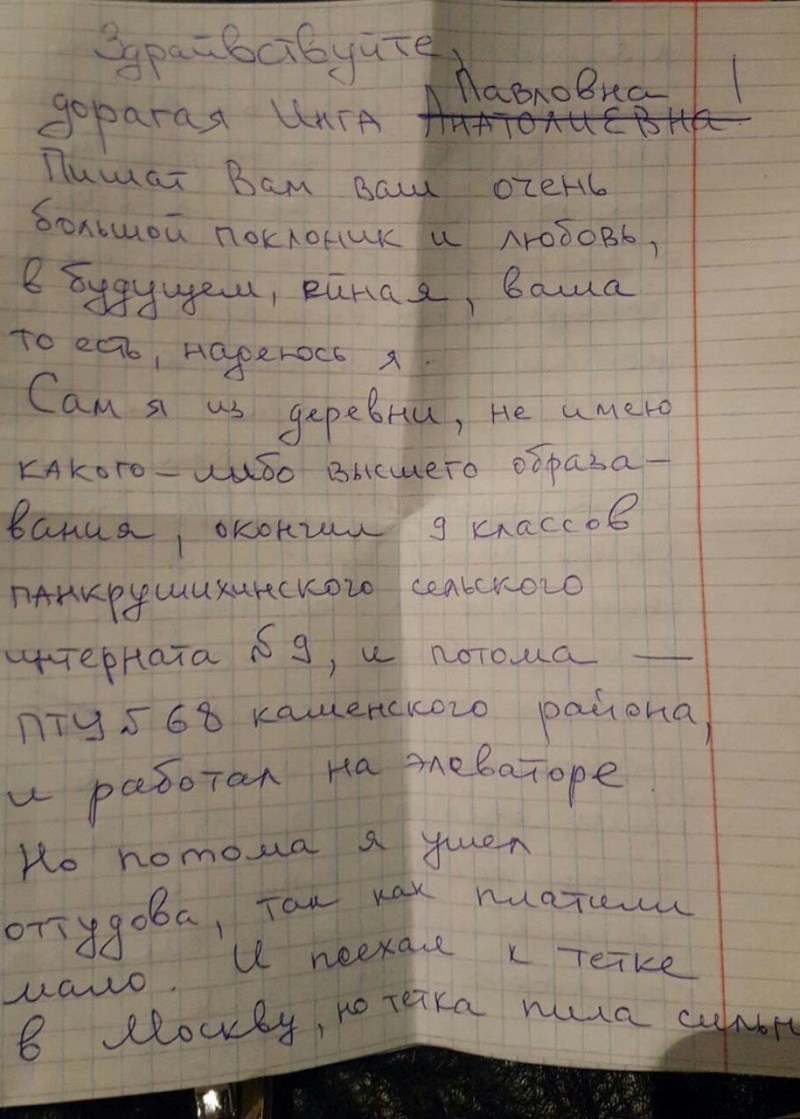 Здрайвствуйте,
дорогая Инга Анатолиевна Павловна!
Пишат Вам ваш очень
большой поклоник и любовь,
в будущем, ейная, ваша
то есть, надеюсь я.
Сам я из деревни, не имею
какого-либо высшего образа-
вания, окончил 9 классов
панкрушихинского сельского
интерната №9, и потома —
ПТУ № 68 каменского района,
и работал на элеваторе.
Но потома я ушел
оттудова, так как платили
мало. И поехал к тетке
в Москву, но тетка пила сильн